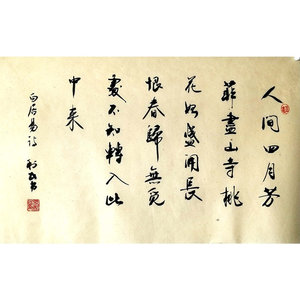 人间四月芳
菲盡山寺桃
花始盛開長
恨春歸無覓
處不知轉入此
中来
白居易诗